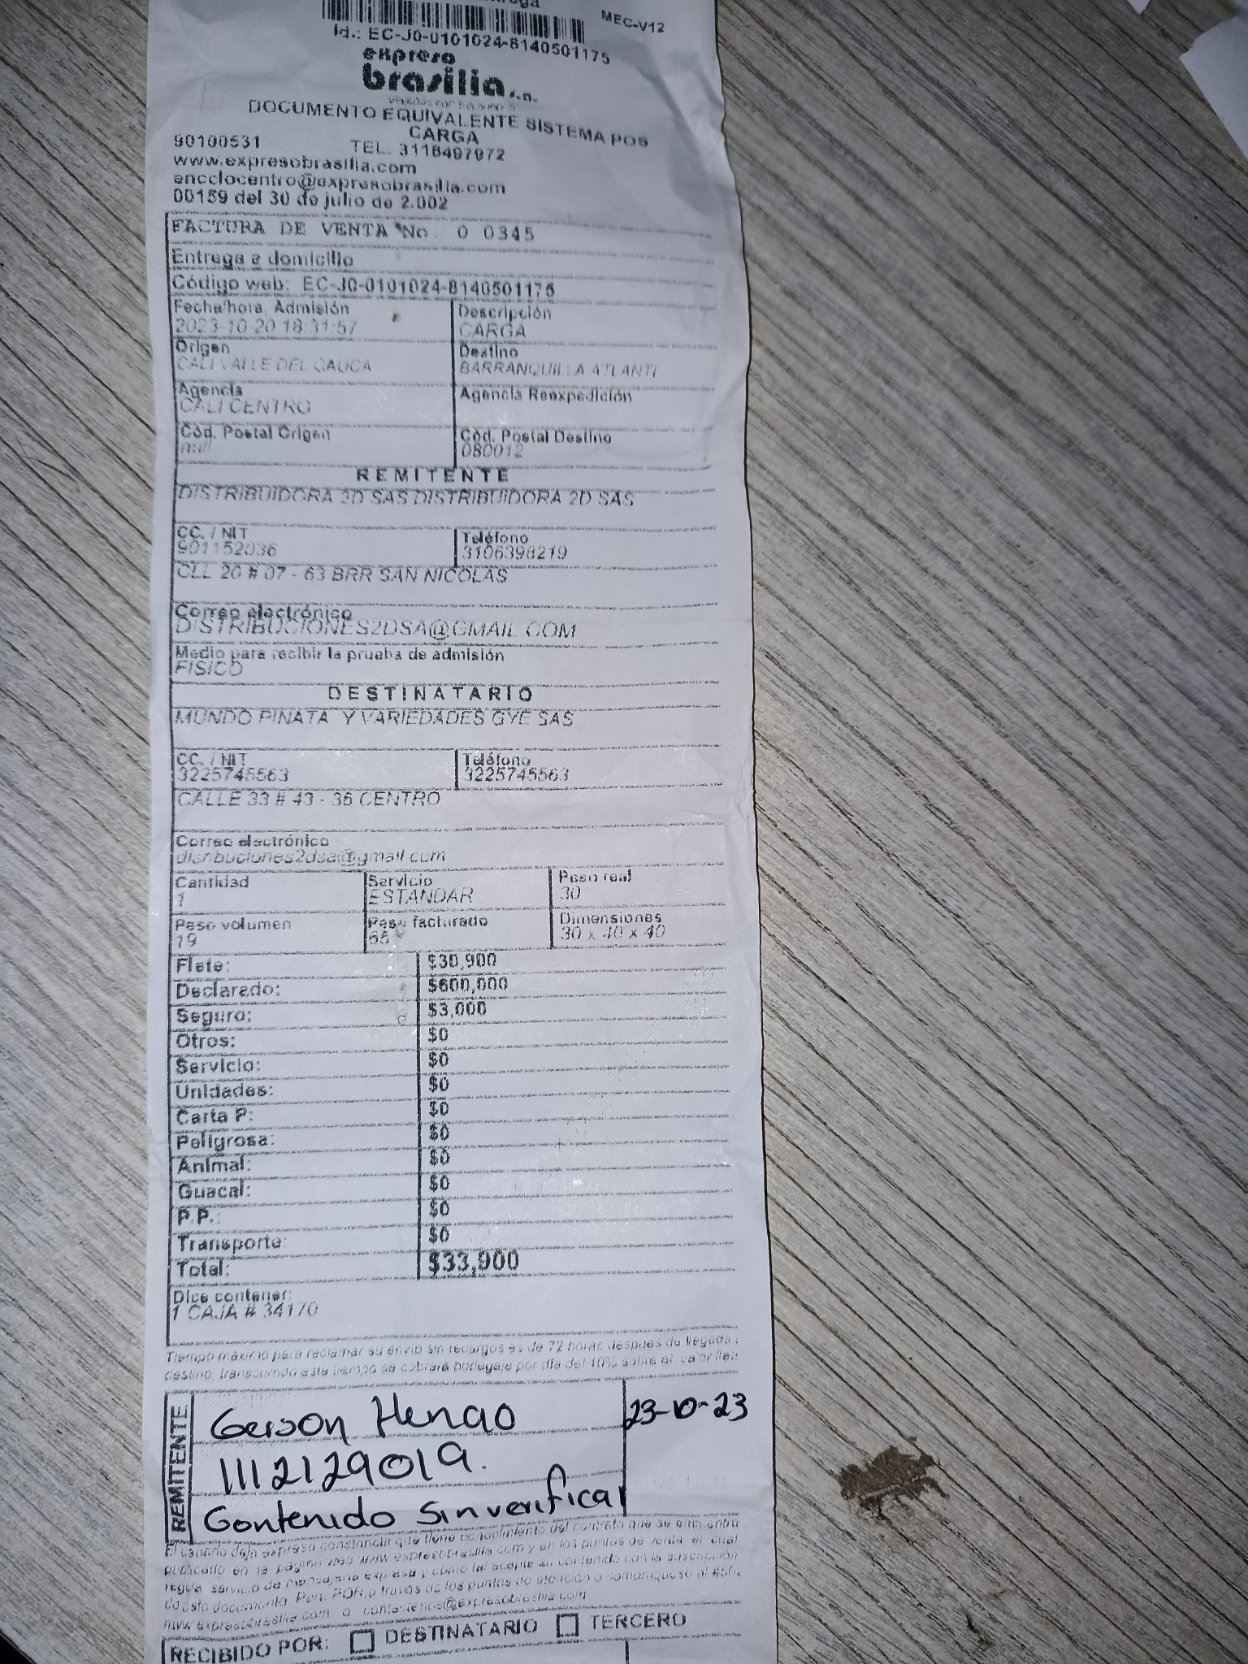 MEC-V12
Id.: EC-J0-0101024-8140501175
expreso
brasilia s.a.
DOCUMENTO EQUIVALENTE SISTEMA POS
CARGA
90100531 TEL. 3116497972
www.expresobrasilia.com
encclocentro@expresobrasilia.com
00159 del 30 de julio de 2.002
FACTURA DE VENTA No. 0 0345
Entrega a domicilio
Código web: EC-J0-0101024-8140501175
Fecha/hora Admisión Descripción
2023-10-20 18:31:57 CARGA
Origen Destino
CALI VALLE DEL CAUCA BARRANQUILLA ATLANTI
Agencia Agencia Reexpedición
CALI CENTRO
Cód. Postal Origen Cód. Postal Destino
null 080012
REMITENTE
DISTRIBUIDORA 2D SAS DISTRIBUIDORA 2D SAS
CC. / NIT Teléfono
901152036 3106398219
CLL 20 # 07 - 63 BRR SAN NICOLAS
Correo electrónico
DISTRIBUCIONES2DSA@GMAIL.COM
Medio para recibir la prueba de admisión
FISICO
DESTINATARIO
MUNDO PINATA Y VARIEDADES GYE SAS
CC. / NIT Teléfono
3225745563 3225745563
CALLE 33 # 43 - 36 CENTRO
Correo electrónico
distribuciones2dsa@gmail.com
Cantidad Servicio Peso real
1 ESTANDAR 30
Peso volumen Peso facturado Dimensiones
19 30 x 40 x 40
Flete: $30,900
Declarado: $600,000
Seguro: $3,000
Otros: $0
Servicio: $0
Unidades: $0
Carta P: $0
Peligrosa: $0
Animal: $0
Guacal: $0
P.P.: $0
Transporte: $0
Total: $33,900
Dice contener:
1 CAJA # 34170
Tiempo máximo para reclamar su envío sin recargos es de 72 horas después de llegada
destino, transcurrido este tiempo se cobrará bodegaje por día del 10% sobre el valor flet
REMITENTE
Gerson Henao 23-10-23
1112129019.
Contenido Sin verificar
El usuario deja expresa constancia que tiene conocimiento del contrato que se encuentra
publicado en la página web www.expresobrasilia.com y en los puntos de venta, el cual
regula servicio de mensajería expresa y como tal acepta su contenido con la suscripción
de este documento. Para PQR a través de los puntos de atención o
www.expresobrasilia.com o contactenos@expresobrasilia.com
RECIBIDO POR: DESTINATARIO TERCERO